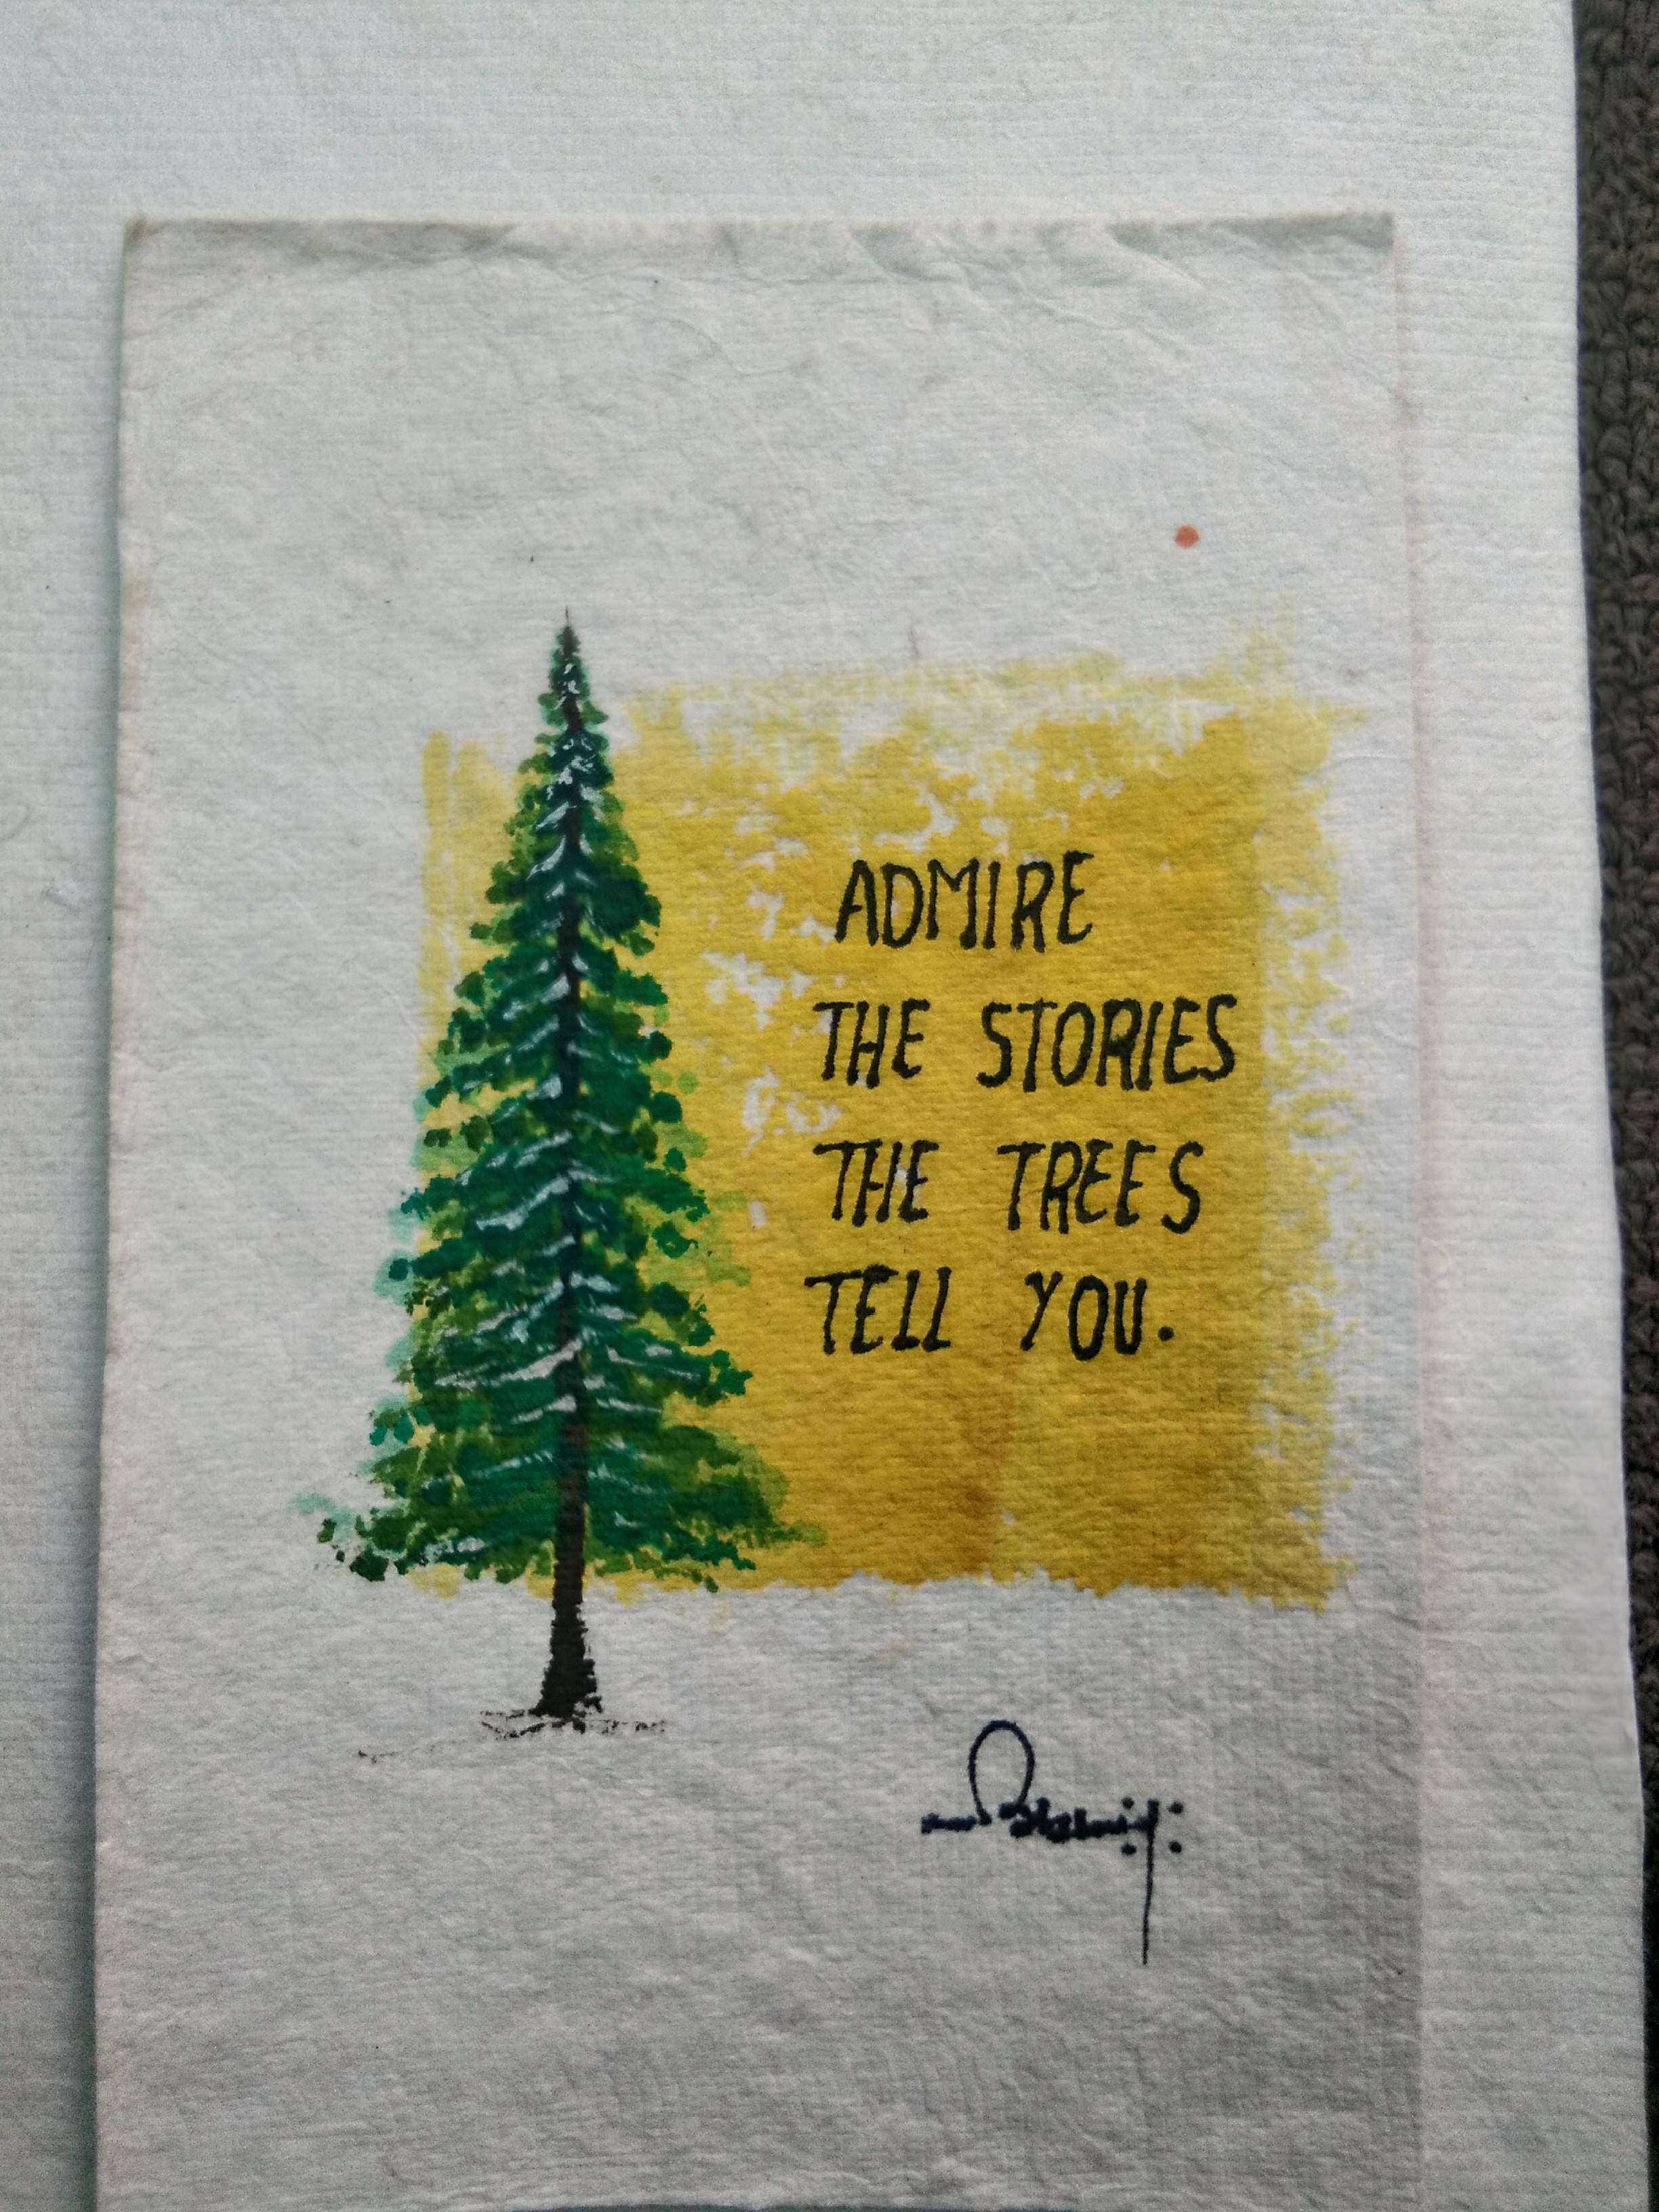 ADMIRE
THE STORIES
THE TREES
TELL YOU.